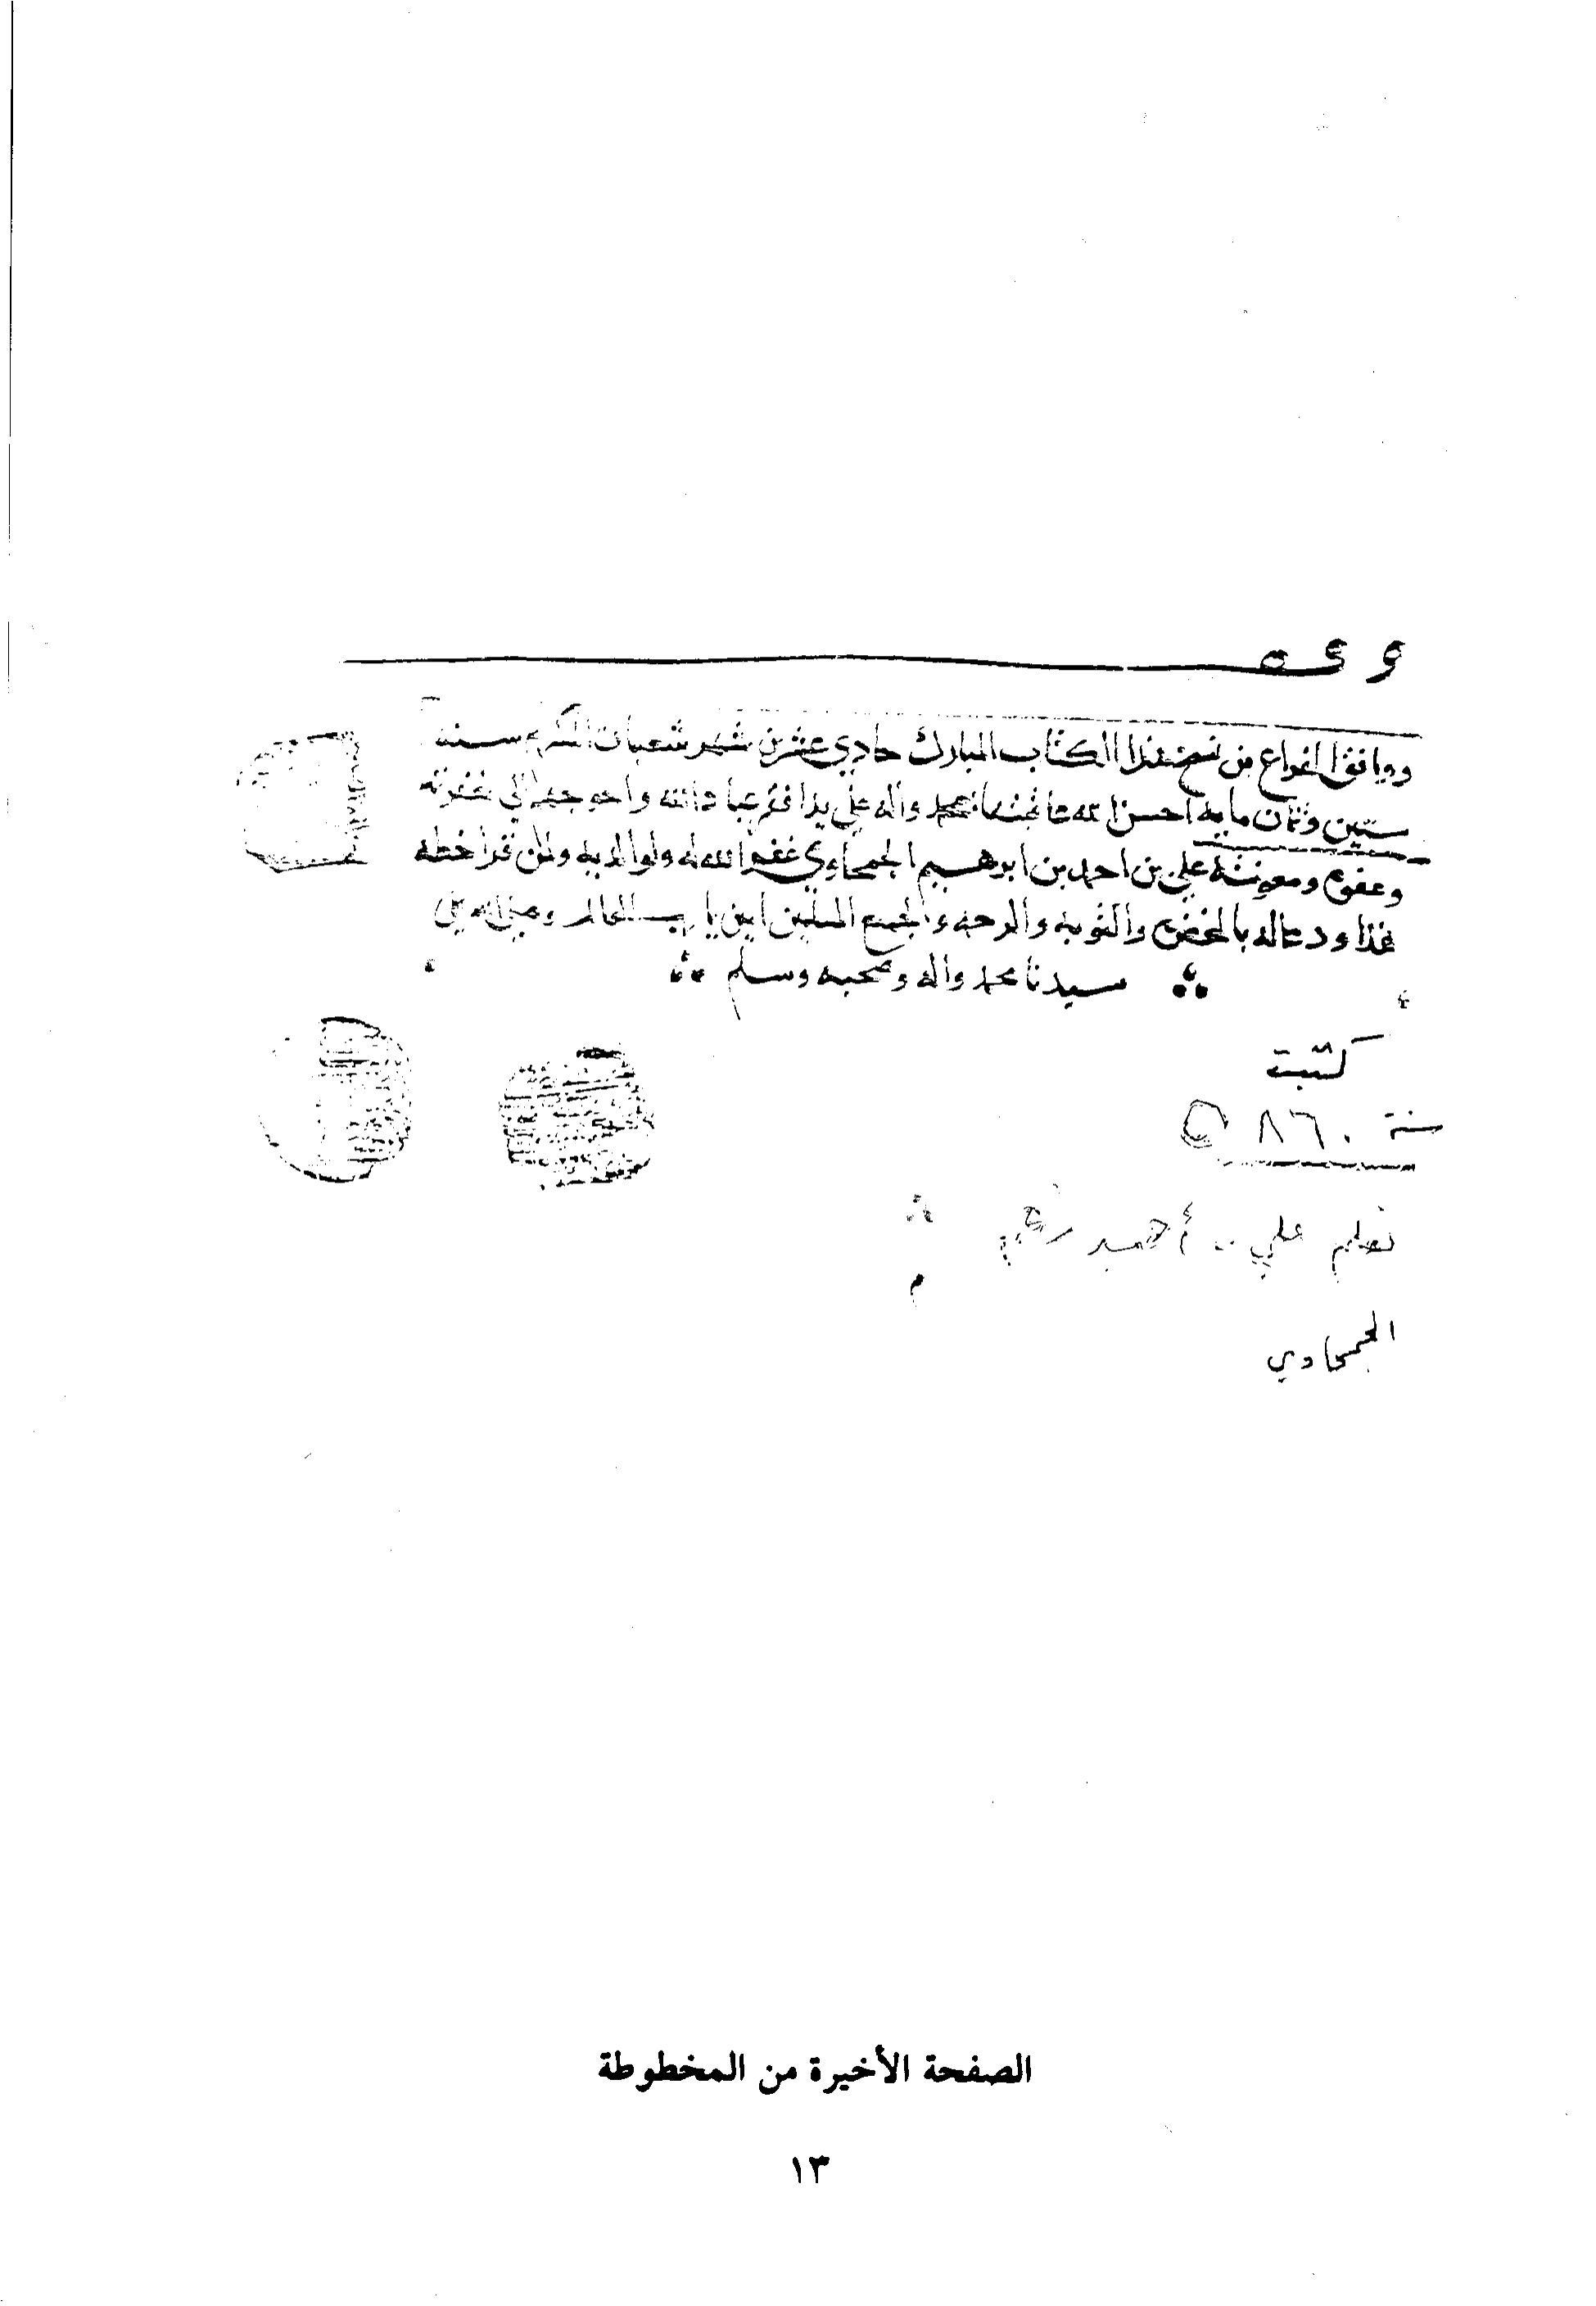 ووافق الفراغ من نسخ هذا الكتاب المبارك حادي عشرين شهر شعبان المكرم سنة
ستين وثمان مايه احسن الله عاقبتها بمحمد واله على يد افقر عباد الله واحوجهم الي مغفرته
وعفوه ومعونته علي بن احمد بن ابرهيم الجمحاوي غفر الله له ولوالديه ولمن قرا خطه
هذا ودعا له بالمغفره والتوبه والرحمه ولجميع المسلمين امين يا رب العالمين وصلى الله على
سيدنا محمد واله وصحبه وسلم
كتبت
سنة ٨٦٠
بقلم علي بن أحمد
الجمحاوي
الصفحة الأخيرة من المخطوطة
١٣